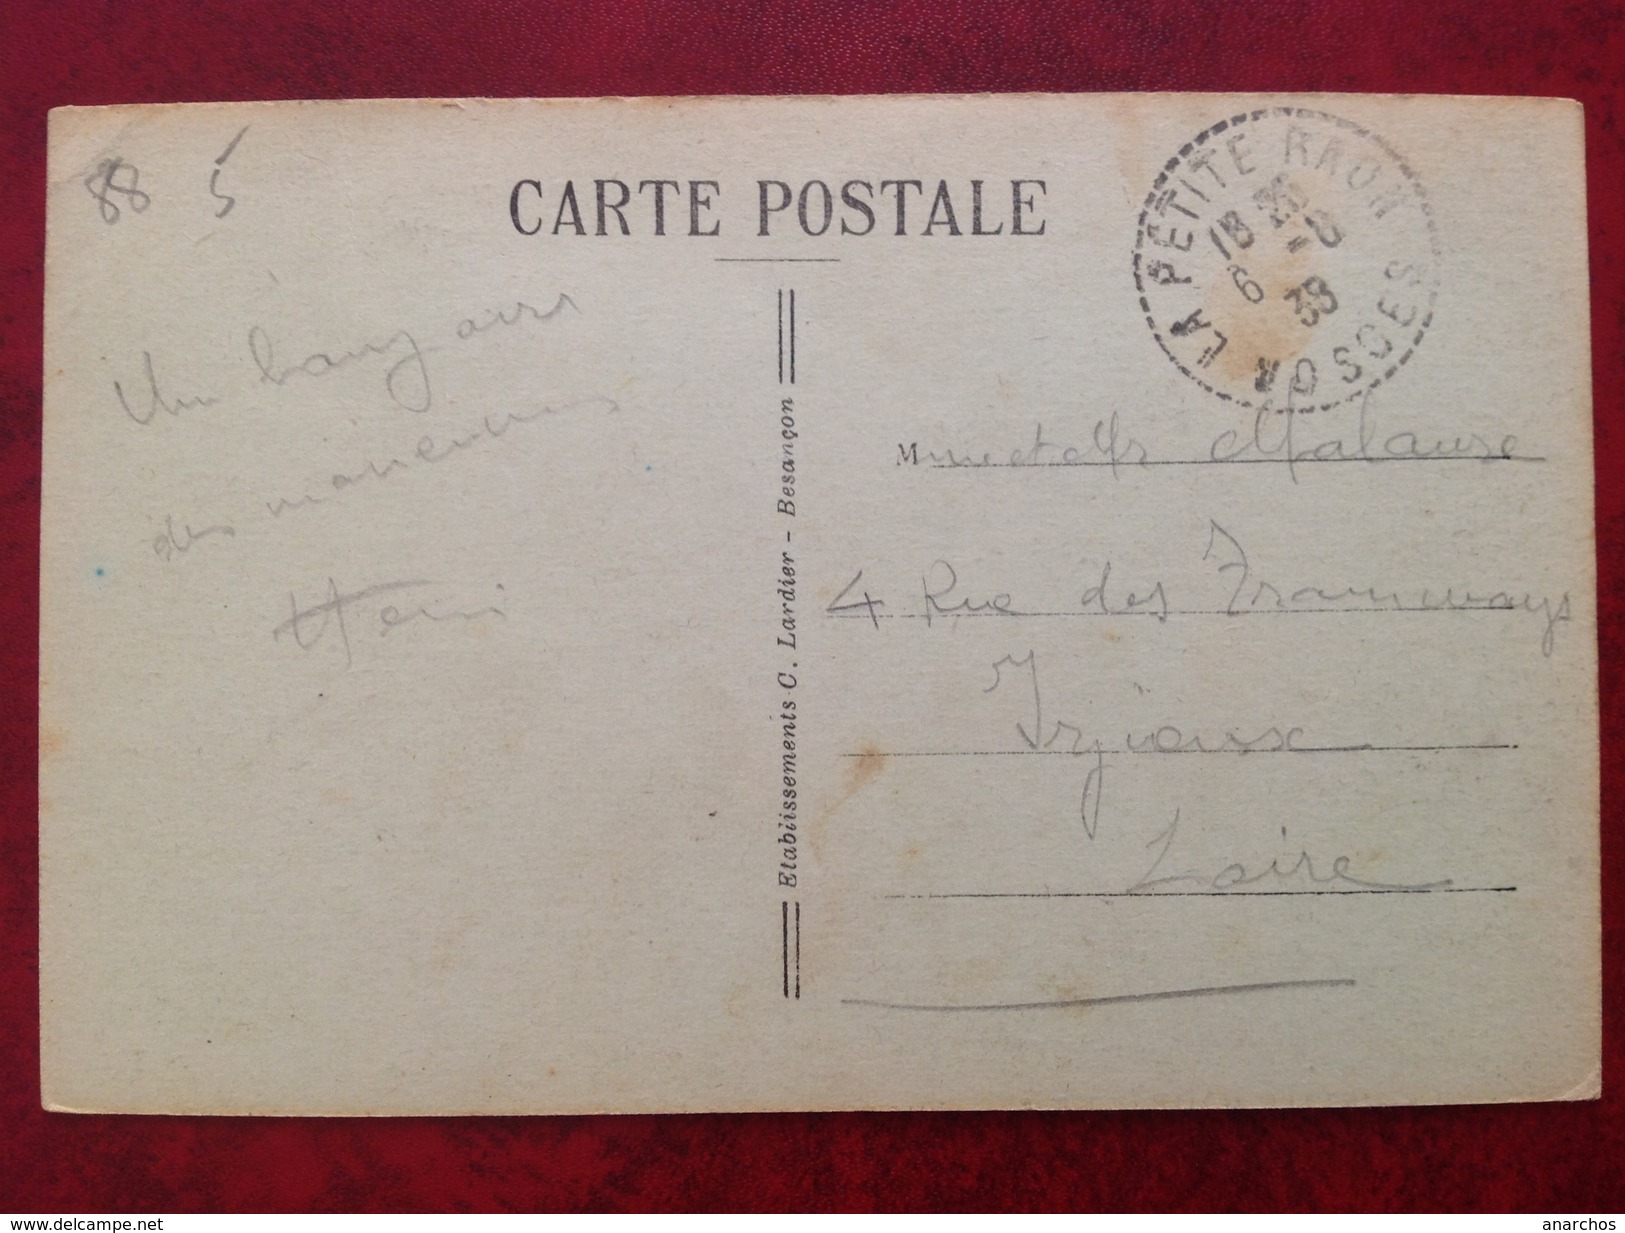 88 5
CARTE POSTALE
LA PETITE RAON VOSGES
18
6 38
Un bonjour
des manoeuvres
Henri
Etablissements C. Lardier - Besançon
M
Malause
4 Rue des Tramways
Loire
www.delcampe.net
anarchos